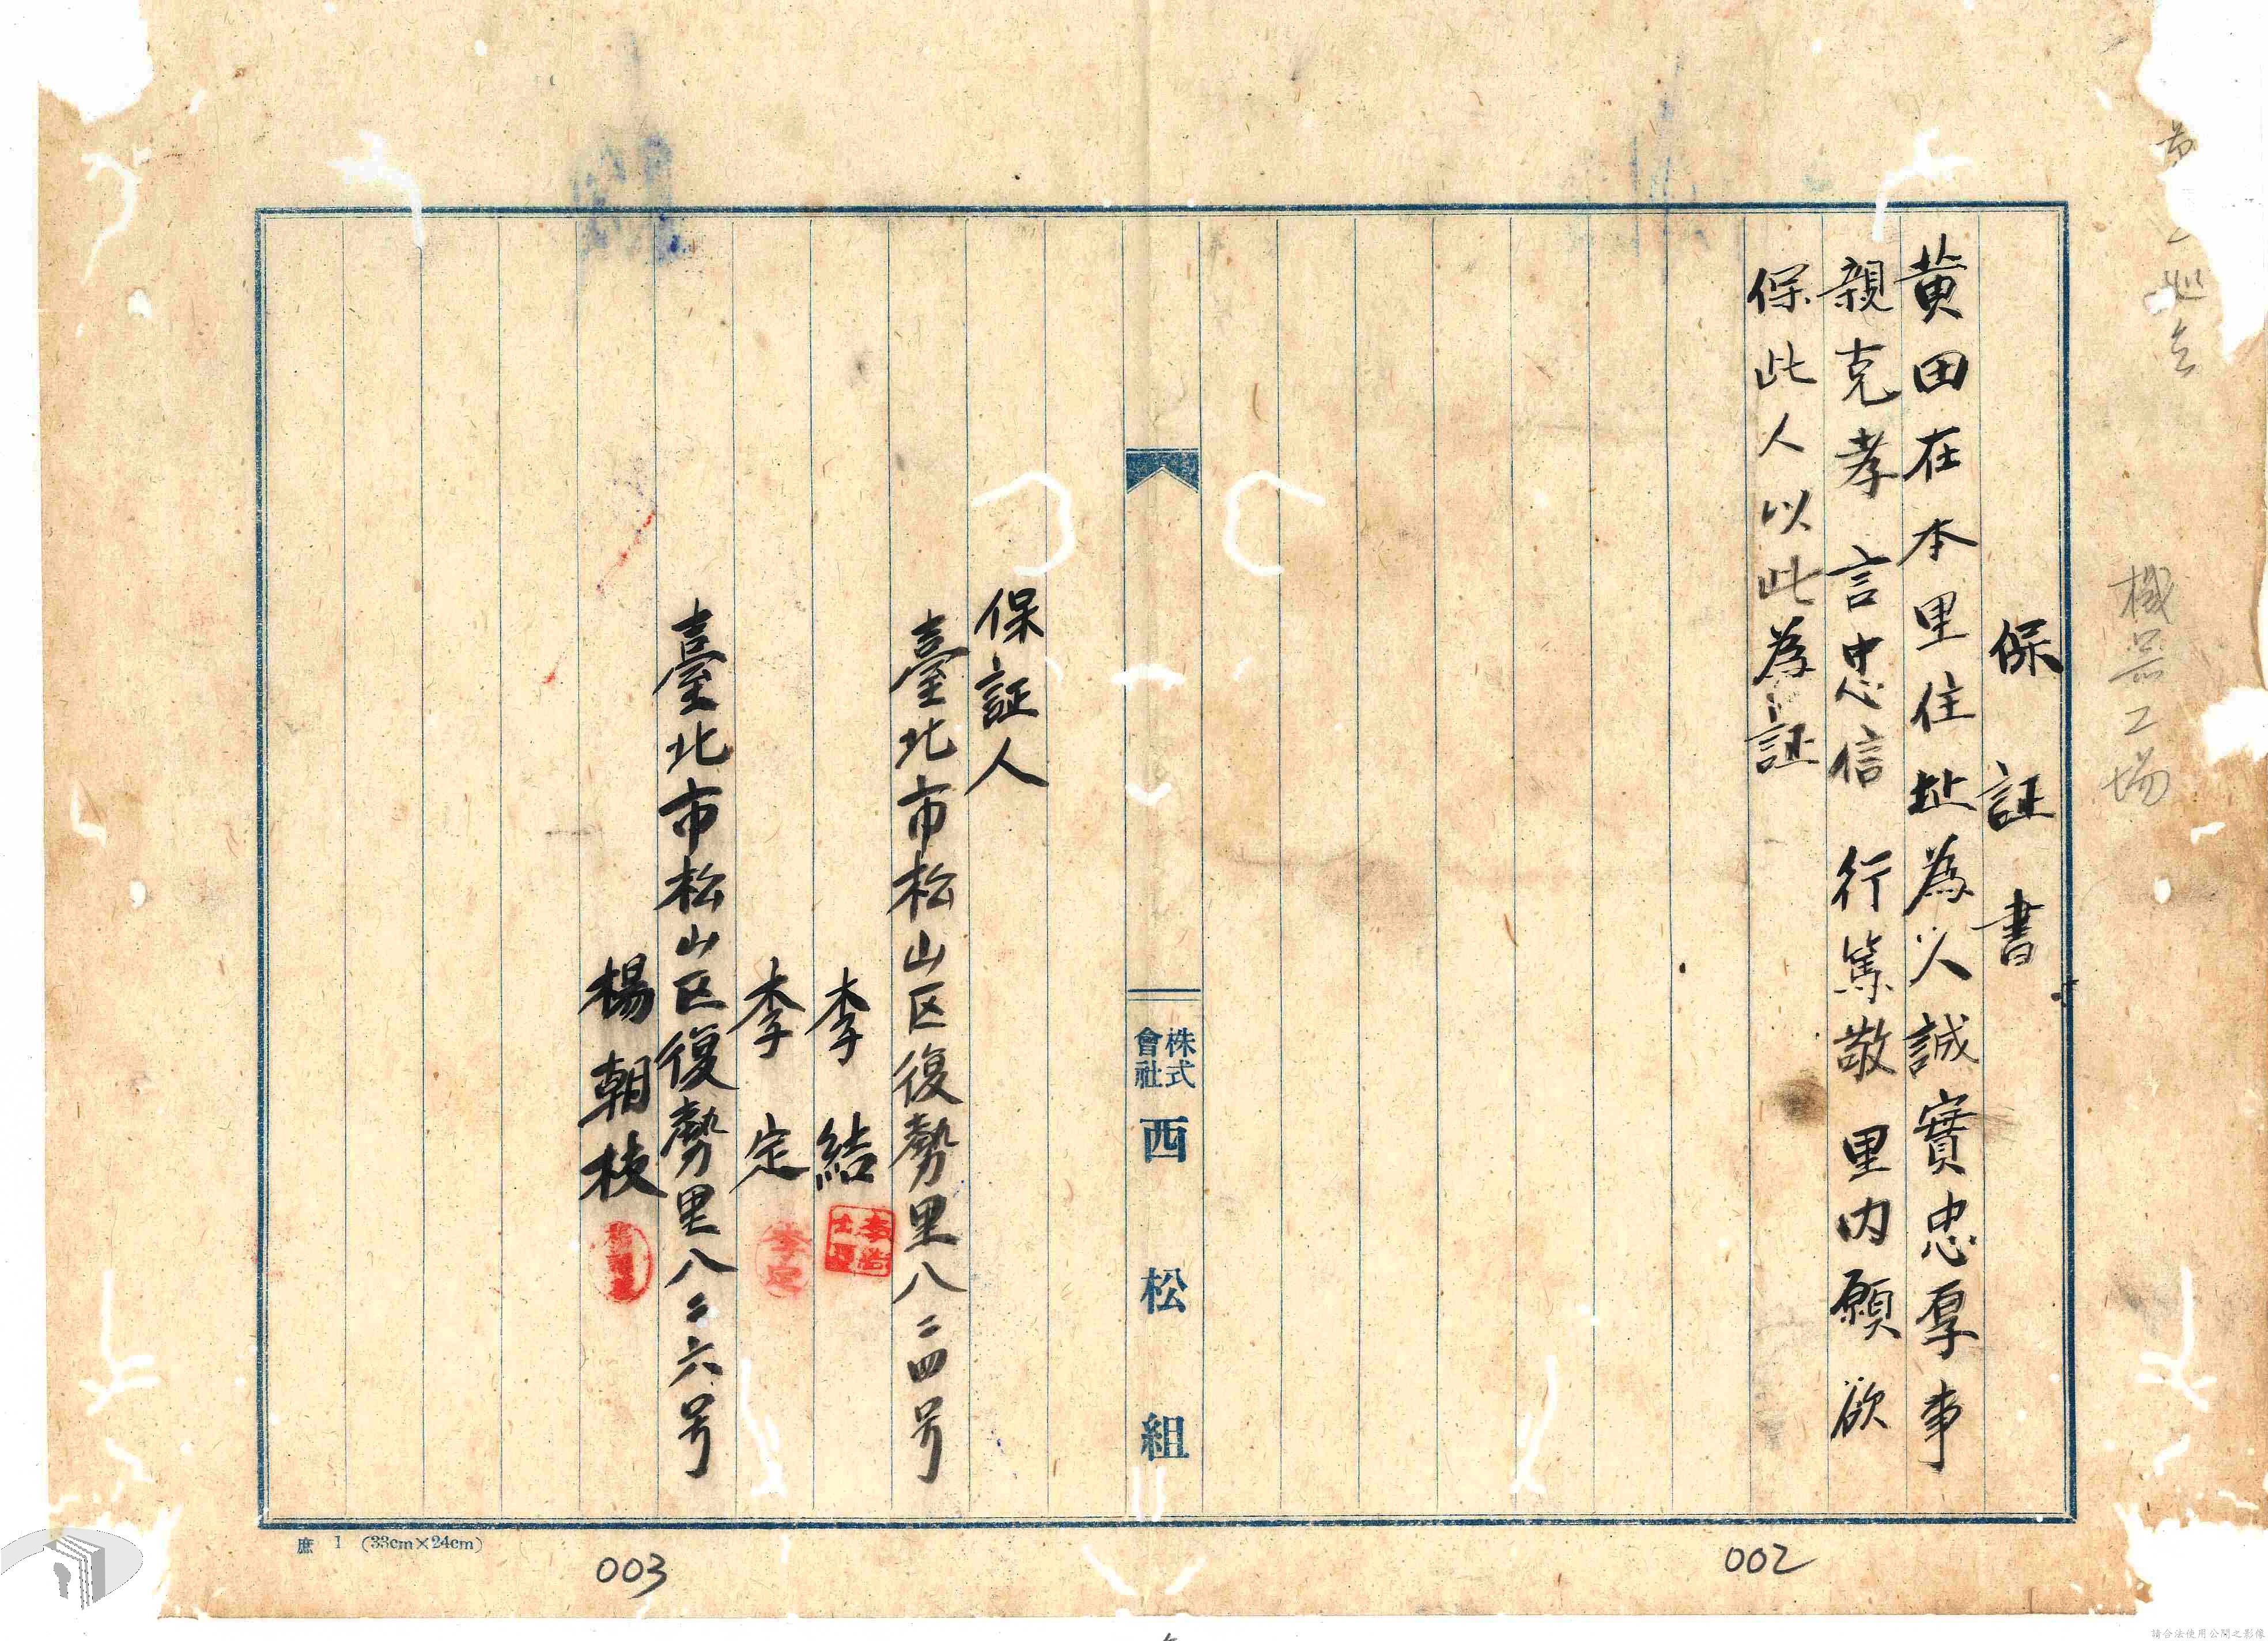 機器工場
保証書
黄田在本里住址為人誠實忠厚事
親克孝言忠信行篤敬里内願欲
保此人以此為証
株式會社西松組
保証人
臺北市松山区復勢里八二四号
李結
李定
李定
臺北市松山区復勢里八二六号
楊朝枝
庶 1 (33cm×24cm)
003
002
請合法使用公開之影像